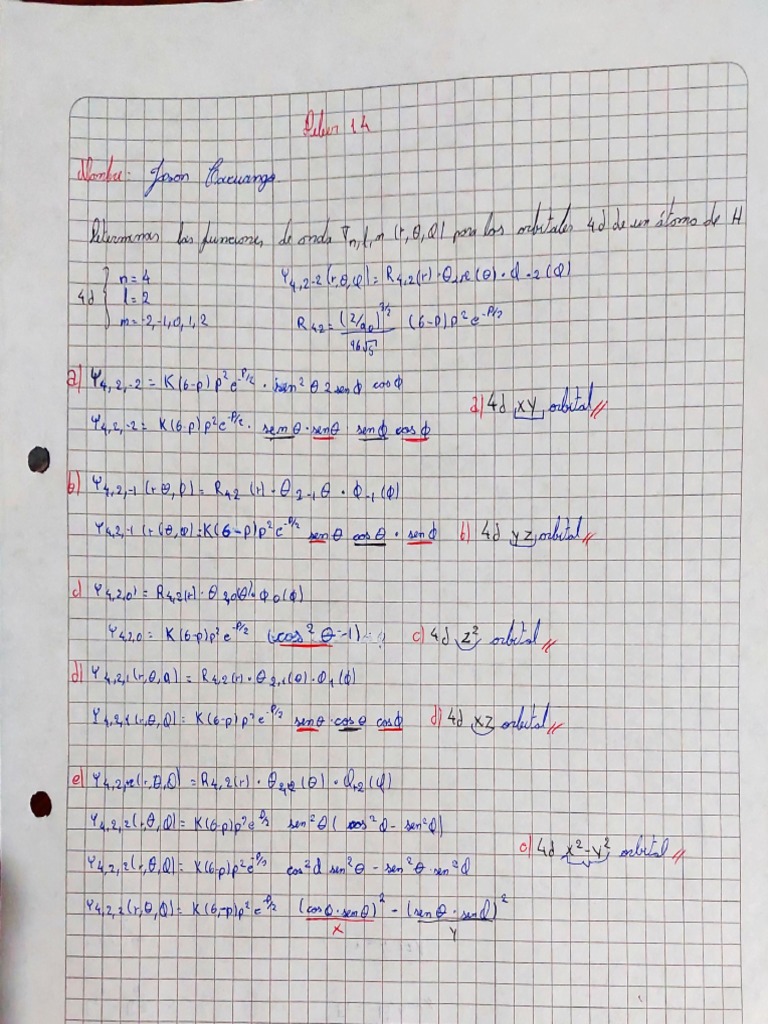 Deber 14
Nombre: Jason Pacuango
Determinar las funciones de onda Ψn,l,m (r,θ,φ) para los orbitales 4d de un átomo de H
4d } n=4
l=2
m=-2,-1,0,1,2
Ψ4,2-2(r,θ,φ)= R4,2(r)·Θ2,±2(θ)·φ-2(φ)
R42= (2/a0)^3/2 / 96√5 (6-ρ)ρ²e^-ρ/2
a) Ψ4,2,-2 = K(6-ρ)ρ²e^-ρ/2 · sen²θ 2senφ cosφ
Ψ4,2,-2= K(6-ρ)ρ²e^-ρ/2 · senθ·senθ senφ cosφ
a) 4d xy orbital//
b) Ψ4,2,-1 (rθ,φ)= R42 (r)·Θ2-1θ·φ-1(φ)
Ψ4,2,-1 (r(θ,φ)=K(6-ρ)ρ²e^-ρ/2 senθ cosθ · senφ b) 4d yz orbital//
c) Ψ4,2,0) = R4,2(r)·Θ2,0(θ)·φ0(φ)
Ψ4,2,0 = K(6-ρ)ρ²e^-ρ/2 (cos²θ-1) c) 4d z² orbital//
d) Ψ4,2,1(r,θ,φ) = R4,2(r)·Θ2,1(θ)·φ1(φ)
Ψ4,2,1(r,θ,φ)= K(6-ρ)ρ²e^-ρ/2 senθ·cosθ cosφ d) 4d xz orbital//
e) Ψ4,2,2(r,θ,φ) = R4,2(r)·Θ2,2(θ)·φ+2(φ)
Ψ4,2,2(r,θ,φ)= K(6-ρ)ρ²e^ρ/2 sen²θ( cos²φ-sen²φ)
Ψ4,2,2(r,θ,φ)= K(6-ρ)ρ²e^-ρ/2 cos²φ sen²θ - sen²θ·sen²φ
e) 4d x²-y² orbital//
Ψ4,2,2(r,θ,φ)= K(6-ρ)ρ²e^-ρ/2 (cosφ·senθ)² - (senθ·senφ)²
x y